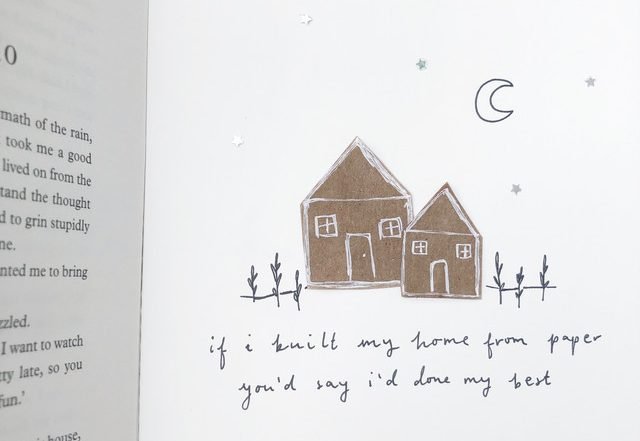 0
math of the rain,
took me a good
lived on from the
tand the thought
d to grin stupidly
ne.
nted me to bring
zzled.
I want to watch
tty late, so you
fun.'
house,
if i built my home from paper
you'd say i'd done my best